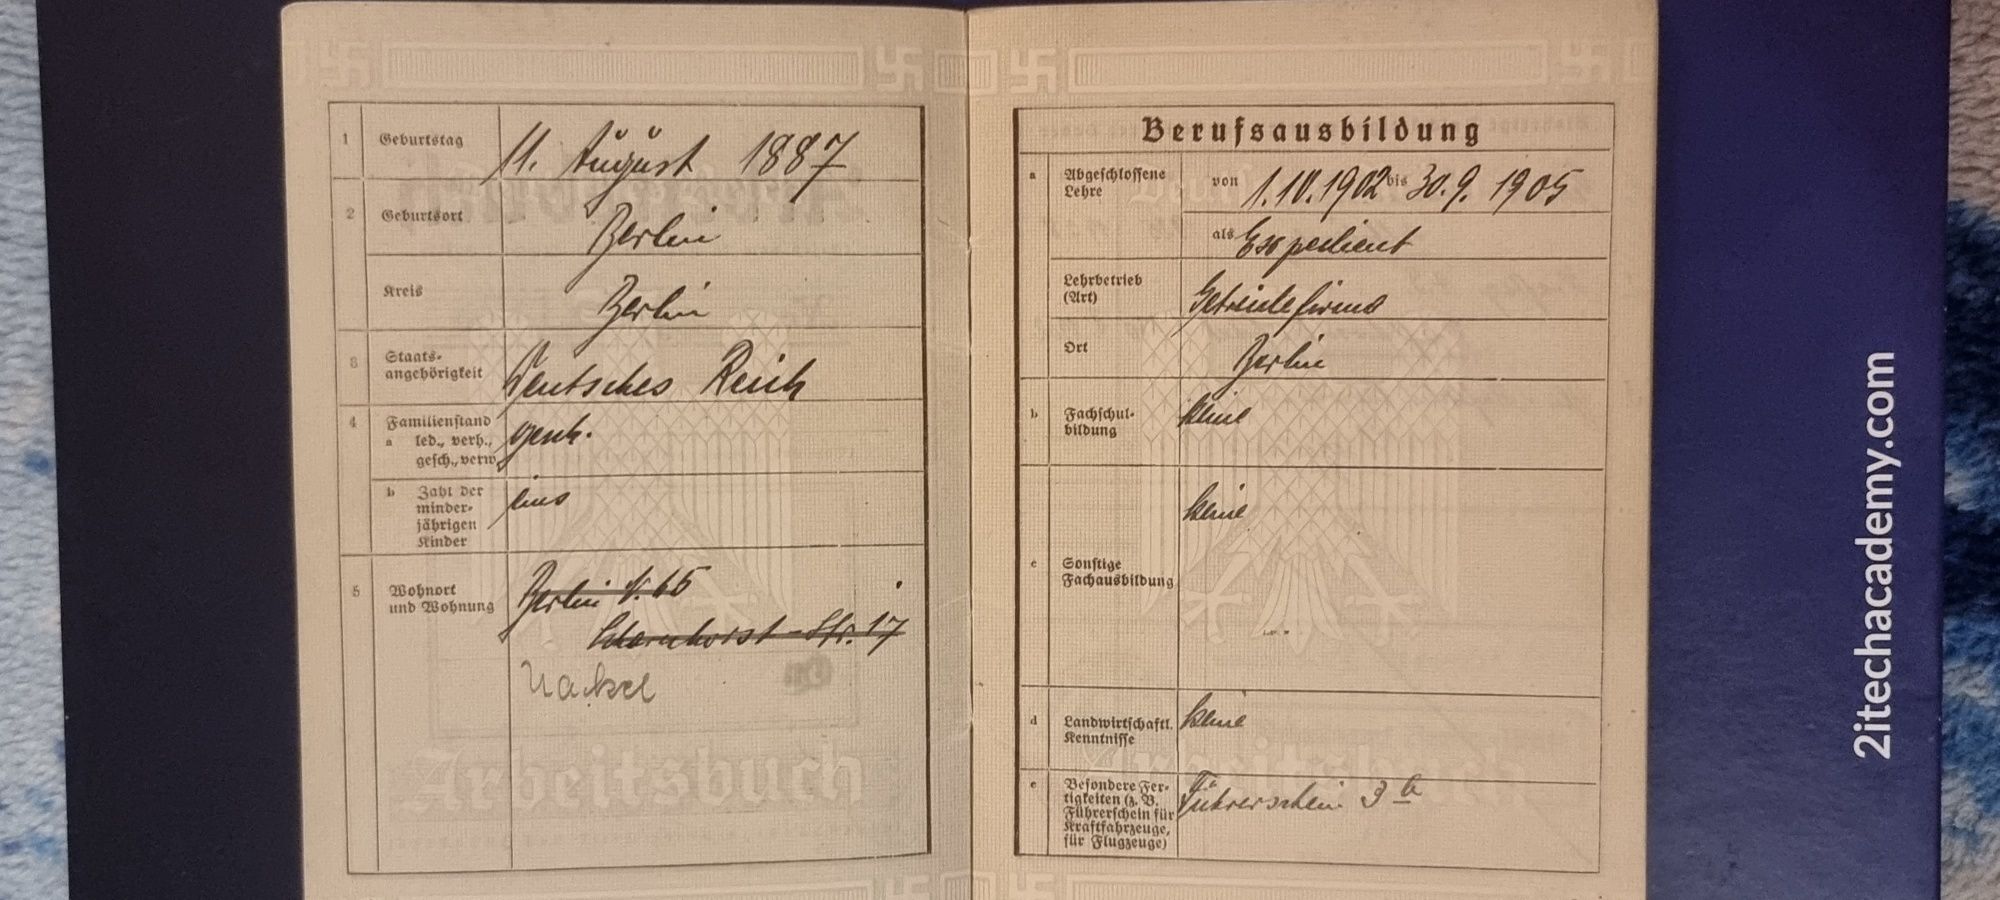 1 Geburtstag 11. August 1887
2 Geburtsort Berlin
Kreis Berlin
3 Staats-
angehörigkeit Deutsches Reich
4 Familienstand
a led., verh.,
gesch., verw. gesch.
b Zahl der
minder-
jährigen
Kinder eins
5 Wohnort
und Wohnung Berlin N. 65
Scharnhorst-Str. 17
Nackel
Arbeitsbuch
Berufsausbildung
a Abgeschlossene
Lehre von 1.10.1902 bis 30.9.1905
als Expedient
Lehrbetrieb
(Art) Getreidefirma
Ort Berlin
b Fachschul-
bildung keine
keine
c Sonstige
Fachausbildung
d Landwirtschaftl.
Kenntnisse keine
e Besondere Fer-
tigkeiten (z. B.
Führerschein für
Kraftfahrzeuge,
für Flugzeuge) Führerschein 3 b
Arbeitsbuch
2itechacademy.com